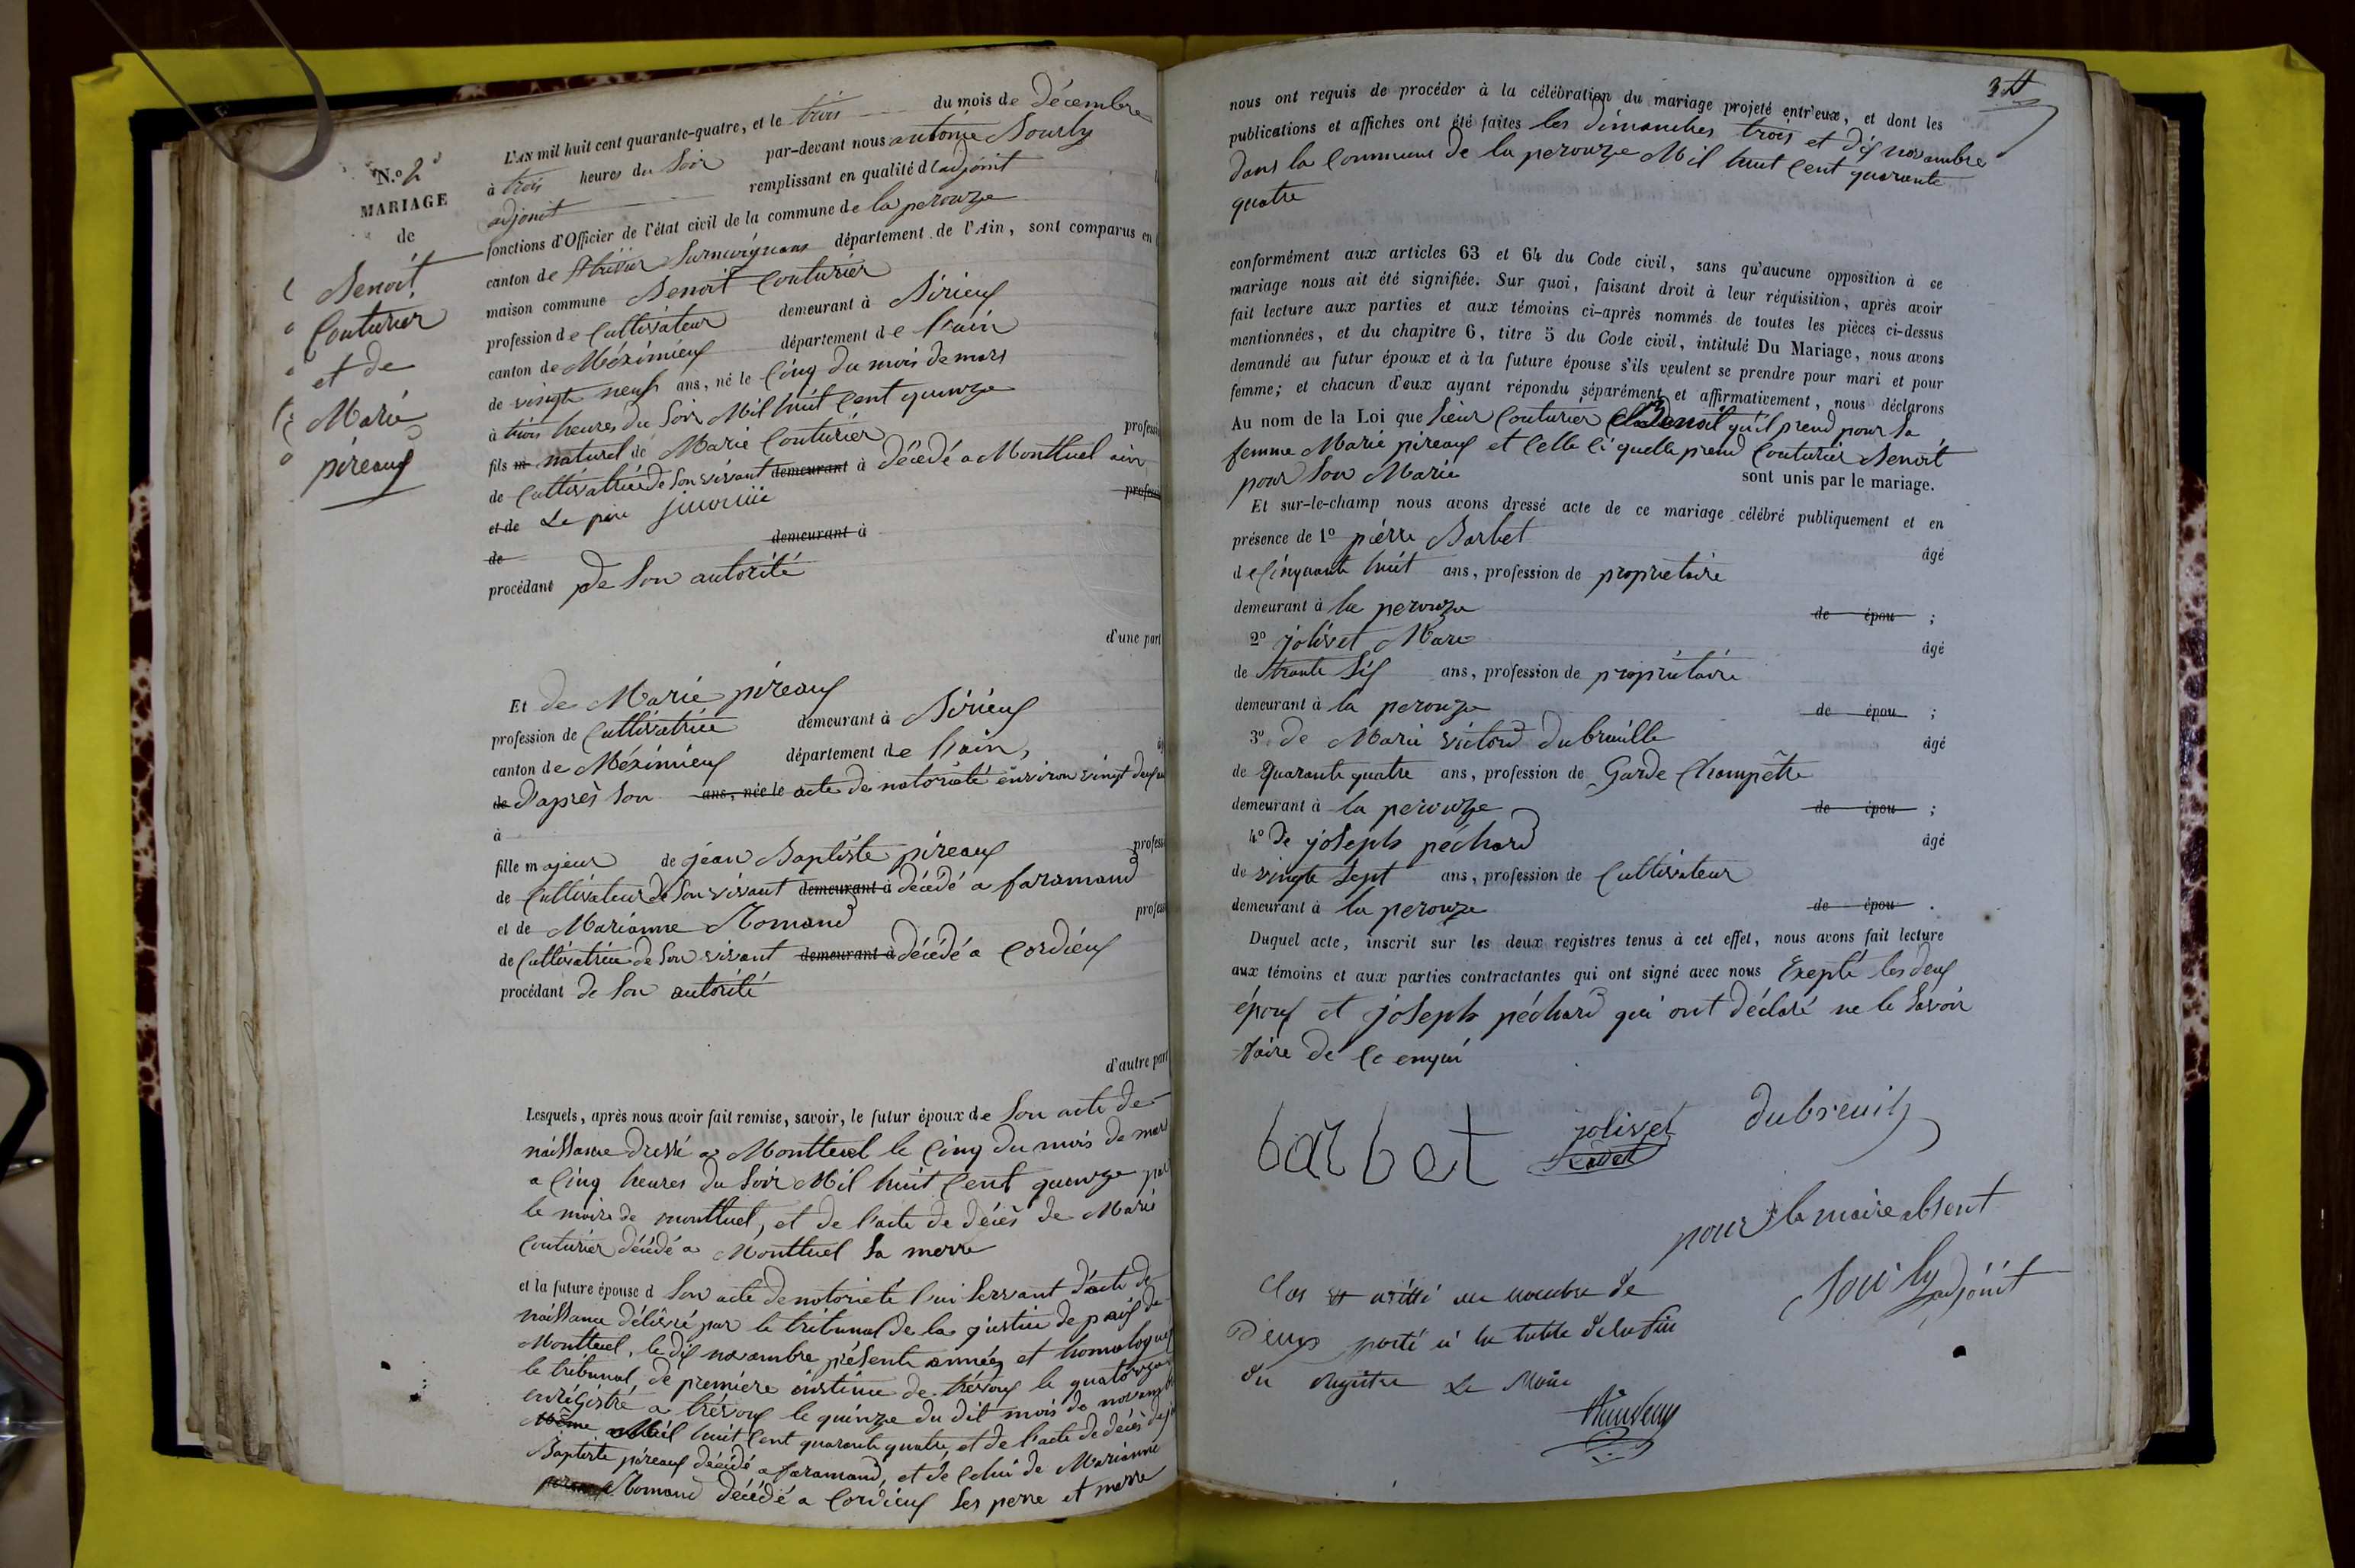 N.º 2
MARIAGE
de
Benoit
Couturier
et de
Marie
pireaux
L'AN mil huit cent quarante-quatre, et le trois du mois de décembre
à trois heures du soir par-devant nous antoine Sourly
adjoint remplissant en qualité d'adjoint
fonctions d'Officier de l'état civil de la commune de la perouze
canton de département de l'Ain, sont comparus en
maison commune Benoit Couturier
profession de Cultivateur demeurant à Birieux
canton de Méximieux département de l'ain
de vingte neuf ans, né le Cinq du mois de mars
à trois heures du soir Mil huit Cent quinze
fils naturel de Marie Couturier profess
de Cultivatrice de son vivant demeurant à décédé a Montluel ain
et de Le père profess
de demeurant à
procédant de Son autorité
d'une part
Et de Marie pireaux
profession de Cultivatrice demeurant à Birieux
canton de Méximieux département de l'ain,
de d'après son ans, née le acte de notoriété environ vingt deux
à
fille majeur de jean Baptiste pireaux professi
de Cultivateur de Son vivant demeurant à décédé a faramand
et de Marianne Romand profess
de Cultivatrice de Son vivant demeurant à décédé a Cordieux
procédant de Son autorité
d'autre part
Lesquels, après nous avoir fait remise, savoir, le futur époux de Son acte de
naissance dressé a Montluel le Cinq du mois de mars
a Cinq heures du Soir Mil huit Cent quinze par
le maire de montluel, et de l'acte de décès de Marie
Couturier décédé a Montluel Sa merre
et la future épouse d Son acte de notoriété lui Servant d'acte de
naissance délivré par le tribunal de la justice de paix de
Montluel, le dix novambre présente année, et homologué
le tribunal de première instance de trévoux le quatorze
enrégistré a trévoux le quinze du dit mois de novambre
Même Mil huit Cent quarante quatre, et de l'acte de décès de j
Baptiste pireaux décédé a faramand, et de Celui de Marianne
Romand décédé a Cordieux Ses perre et merre
nous ont requis de procéder à la célébration du mariage projeté entr'eux, et dont les
publications et affiches ont été faites les dimanches trois et dix novambre
dans la Commune de la perouze Mil huit Cent quarante
quatre
conformément aux articles 63 et 64 du Code civil, sans qu'aucune opposition à ce
mariage nous ait été signifiée. Sur quoi, faisant droit à leur réquisition, après avoir
fait lecture aux parties et aux témoins ci-après nommés de toutes les pièces ci-dessus
mentionnées, et du chapitre 6, titre 5 du Code civil, intitulé Du Mariage, nous avons
demandé au futur époux et à la future épouse s'ils veulent se prendre pour mari et pour
femme; et chacun d'eux ayant répondu séparément et affirmativement, nous déclarons
Au nom de la Loi que Sieur Couturier Benoit qu'il prend pour Sa
femme Marie pireaux et Celle Ci quelle prend Couturier Benoit
pour Son Marie sont unis par le mariage.
Et sur-le-champ nous avons dressé acte de ce mariage célébré publiquement et en
présence de 1º pierre Barbet âgé
de Cinquante huit ans, profession de propriétaire
demeurant à la perouze de épou ;
2º jolivet Marc âgé
de trante Six ans, profession de propriétaire
demeurant à la perouze de épou ;
3º de Marie victord dubruille âgé
de quarante quatre ans, profession de Garde Champêtre
demeurant à la perouze de épou ;
4º de joseph péchard âgé
de vingte Sept ans, profession de Cultivateur
demeurant à la perouze de épou .
Duquel acte, inscrit sur les deux registres tenus à cet effet, nous avons fait lecture
aux témoins et aux parties contractantes qui ont signé avec nous Exepté les deux
époux et joseph péchard qui ont déclaré ne le Savoir
faire de Ce enquis
barbet jolivet dubreuil
pour le maire absent
Sourly adjoint
Clos et arrêté au nombre de
Deux porté à la table de la fin
du Registre Le Maire